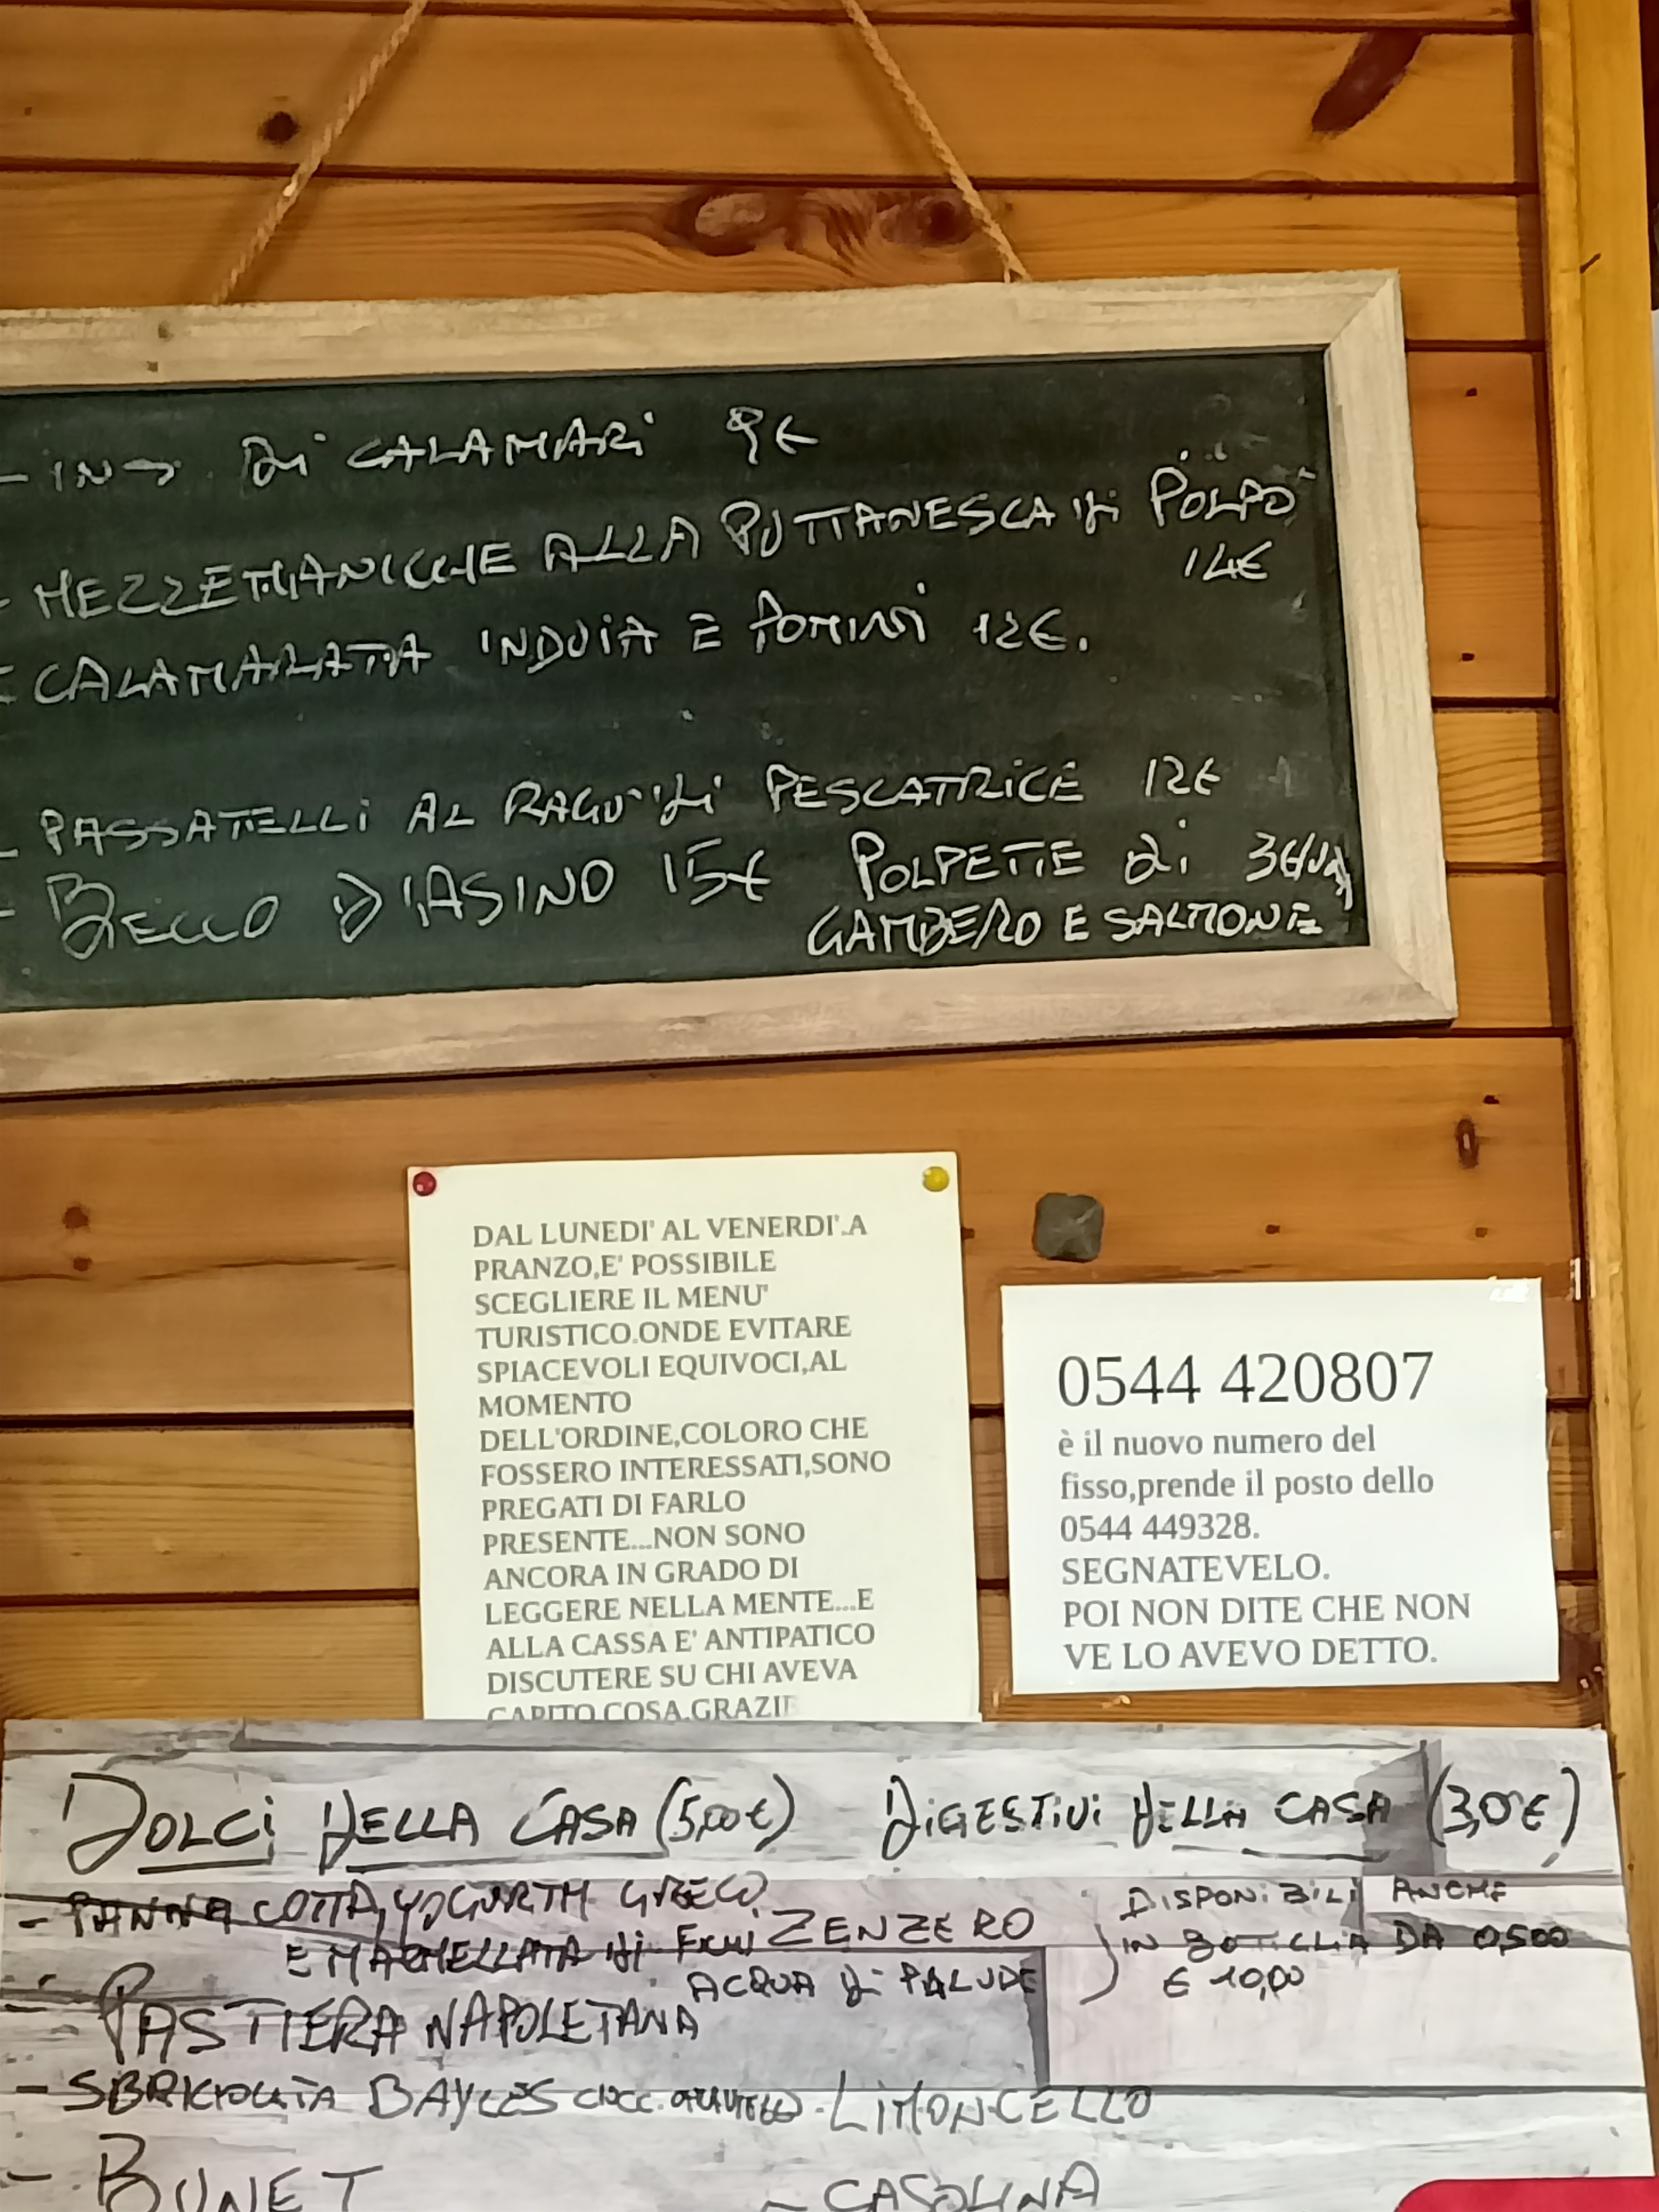 DI CALAMARI 9€
- MEZZEMANICHE ALLA PUTTANESCA DI POLPO
14€
CALAMARATA INDUIA E POMINI 12€.
- PASSATELLI AL RAGU' DI PESCATRICE 12€
- D'ASINO 15€
POLPETTE DI 3€/
GAMBERO E SALMONE
DAL LUNEDI' AL VENERDI'.A
PRANZO,E' POSSIBILE
SCEGLIERE IL MENU'
TURISTICO.ONDE EVITARE
SPIACEVOLI EQUIVOCI,AL
MOMENTO
DELL'ORDINE,COLORO CHE
FOSSERO INTERESSATI,SONO
PREGATI DI FARLO
PRESENTE...NON SONO
ANCORA IN GRADO DI
LEGGERE NELLA MENTE...E
ALLA CASSA E' ANTIPATICO
DISCUTERE SU CHI AVEVA
CAPITO COSA.GRAZIE
0544 420807
è il nuovo numero del
fisso,prende il posto dello
0544 449328.
SEGNATEVELO.
POI NON DITE CHE NON
VE LO AVEVO DETTO.
DOLCI DELLA CASA (5,00€)
- PANNA COTTA, YOGURTH GRECO,
E MARMELLATA DI FICHI
- PASTIERA NAPOLETANA
- SBRICIOLATA BAYLES CIOCC.
- BUNET
DIGESTIVI DELLA CASA (3,0€)
ZENZERO
ACQUA DI PALUDE
DISPONIBILI ANCHE
IN BOTIGLIA DA 0,500
€ 10,00
- LIMONCELLO
- CASOLINA